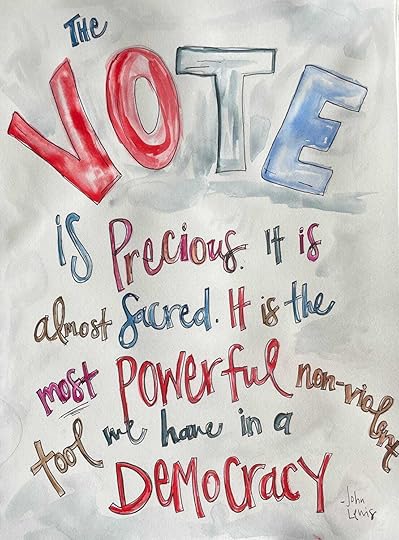 The
VOTE
is Precious. It is
almost Sacred. It is the
most Powerful non-violent
tool we have in a
Democracy
-John
Lewis